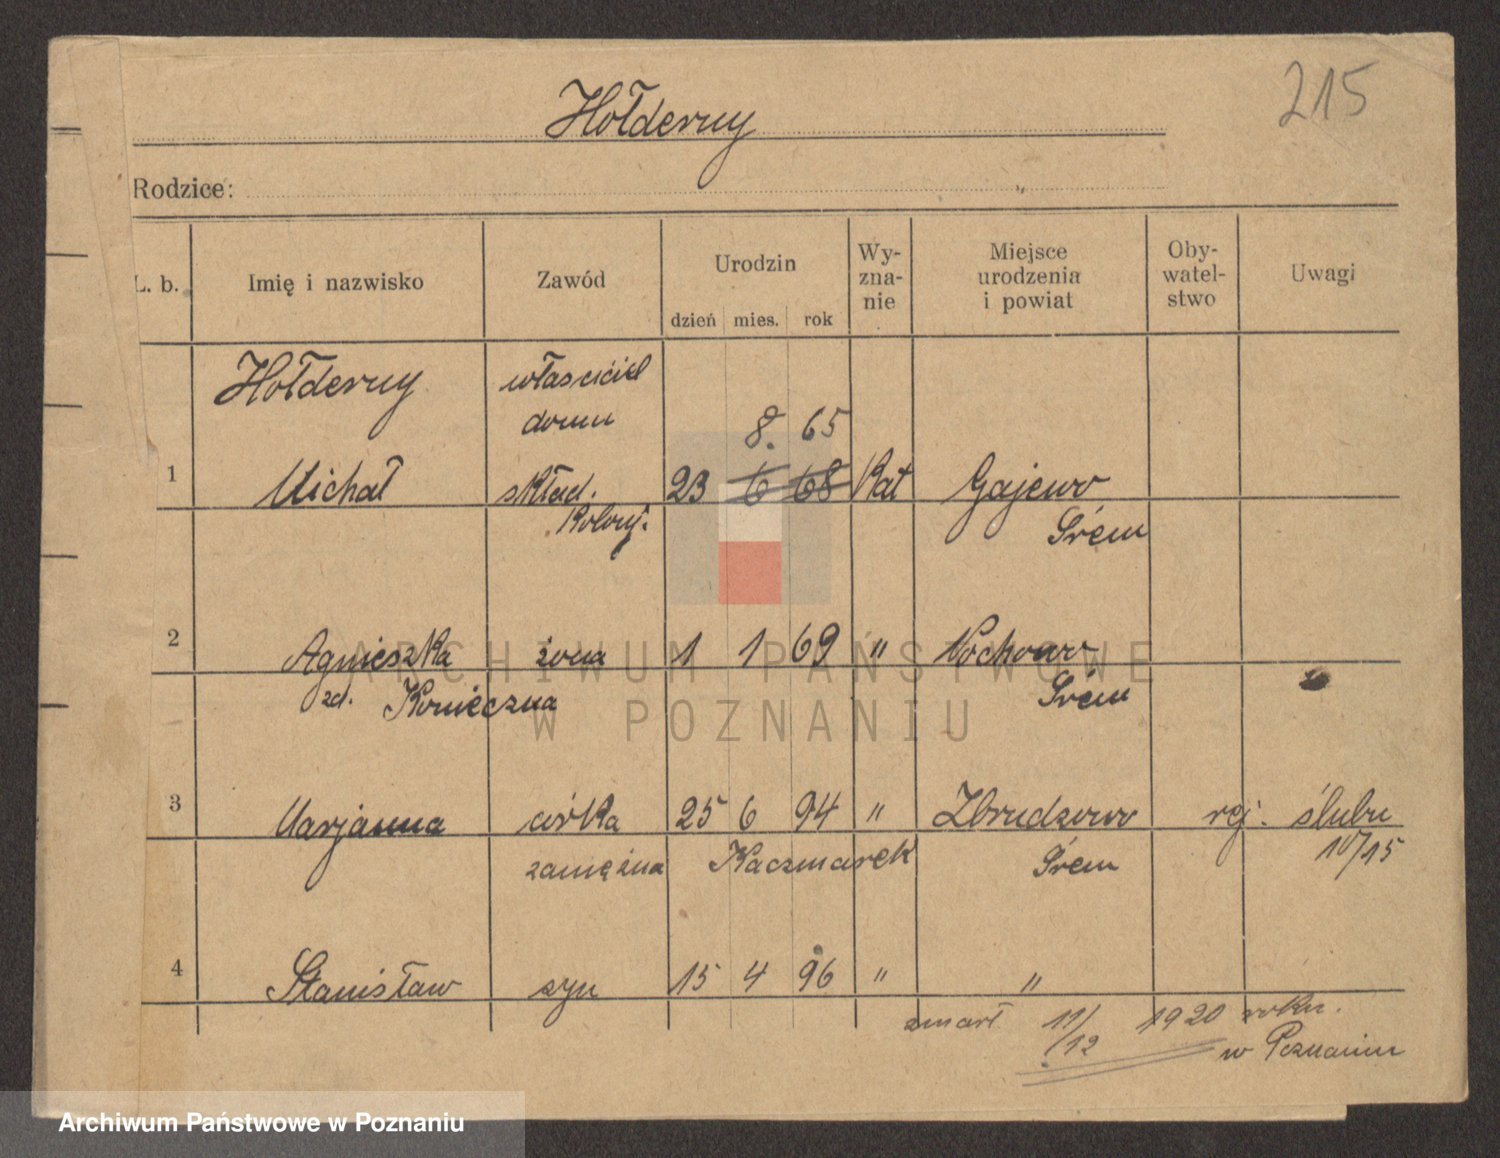 215
Hołderny
Rodzice:
L. b. Imię i nazwisko Zawód Urodzin Wy- Miejsce Oby- Uwagi
zna- urodzenia watel-
dzień mies. rok nie i powiat stwo
Hołderny właściciel
domu 8. 65
1 Michał skład. 23 6 68 Kat Gajewo
Kolonj. Śrem
2 Agnieszka żona 1 1 69 " Nochowo
zd. Konieczna Śrem
3 Marjanna córka 25 6 94 " Zbrudzewo rej. ślubu
zamężna Kaczmarek Śrem 10/15
4 Stanisław syn 15 4 96 " "
zmarł 11/12 1920 roku.
w Poznaniu
ARCHIWUM PAŃSTWOWE
W POZNANIU
Archiwum Państwowe w Poznaniu